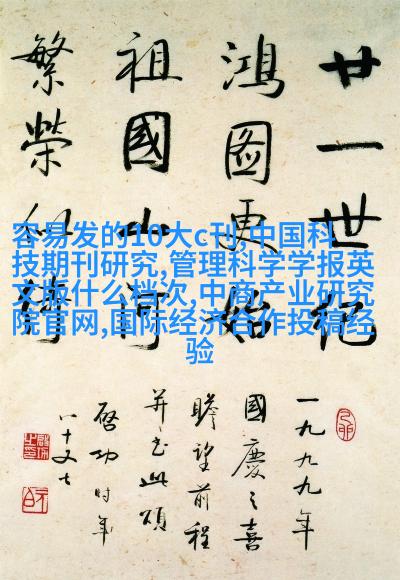 廿一世纪
鸿图更始
祖國山河
繁榮似锦
一九九九年
國慶之喜
瞻望前程
并书此颂
启功时年
八十又七
容易发的10大c刊,中国科
技期刊研究,管理科学学报英
文版什么档次,中商产业研究
院官网,国际经济合作投稿经
验